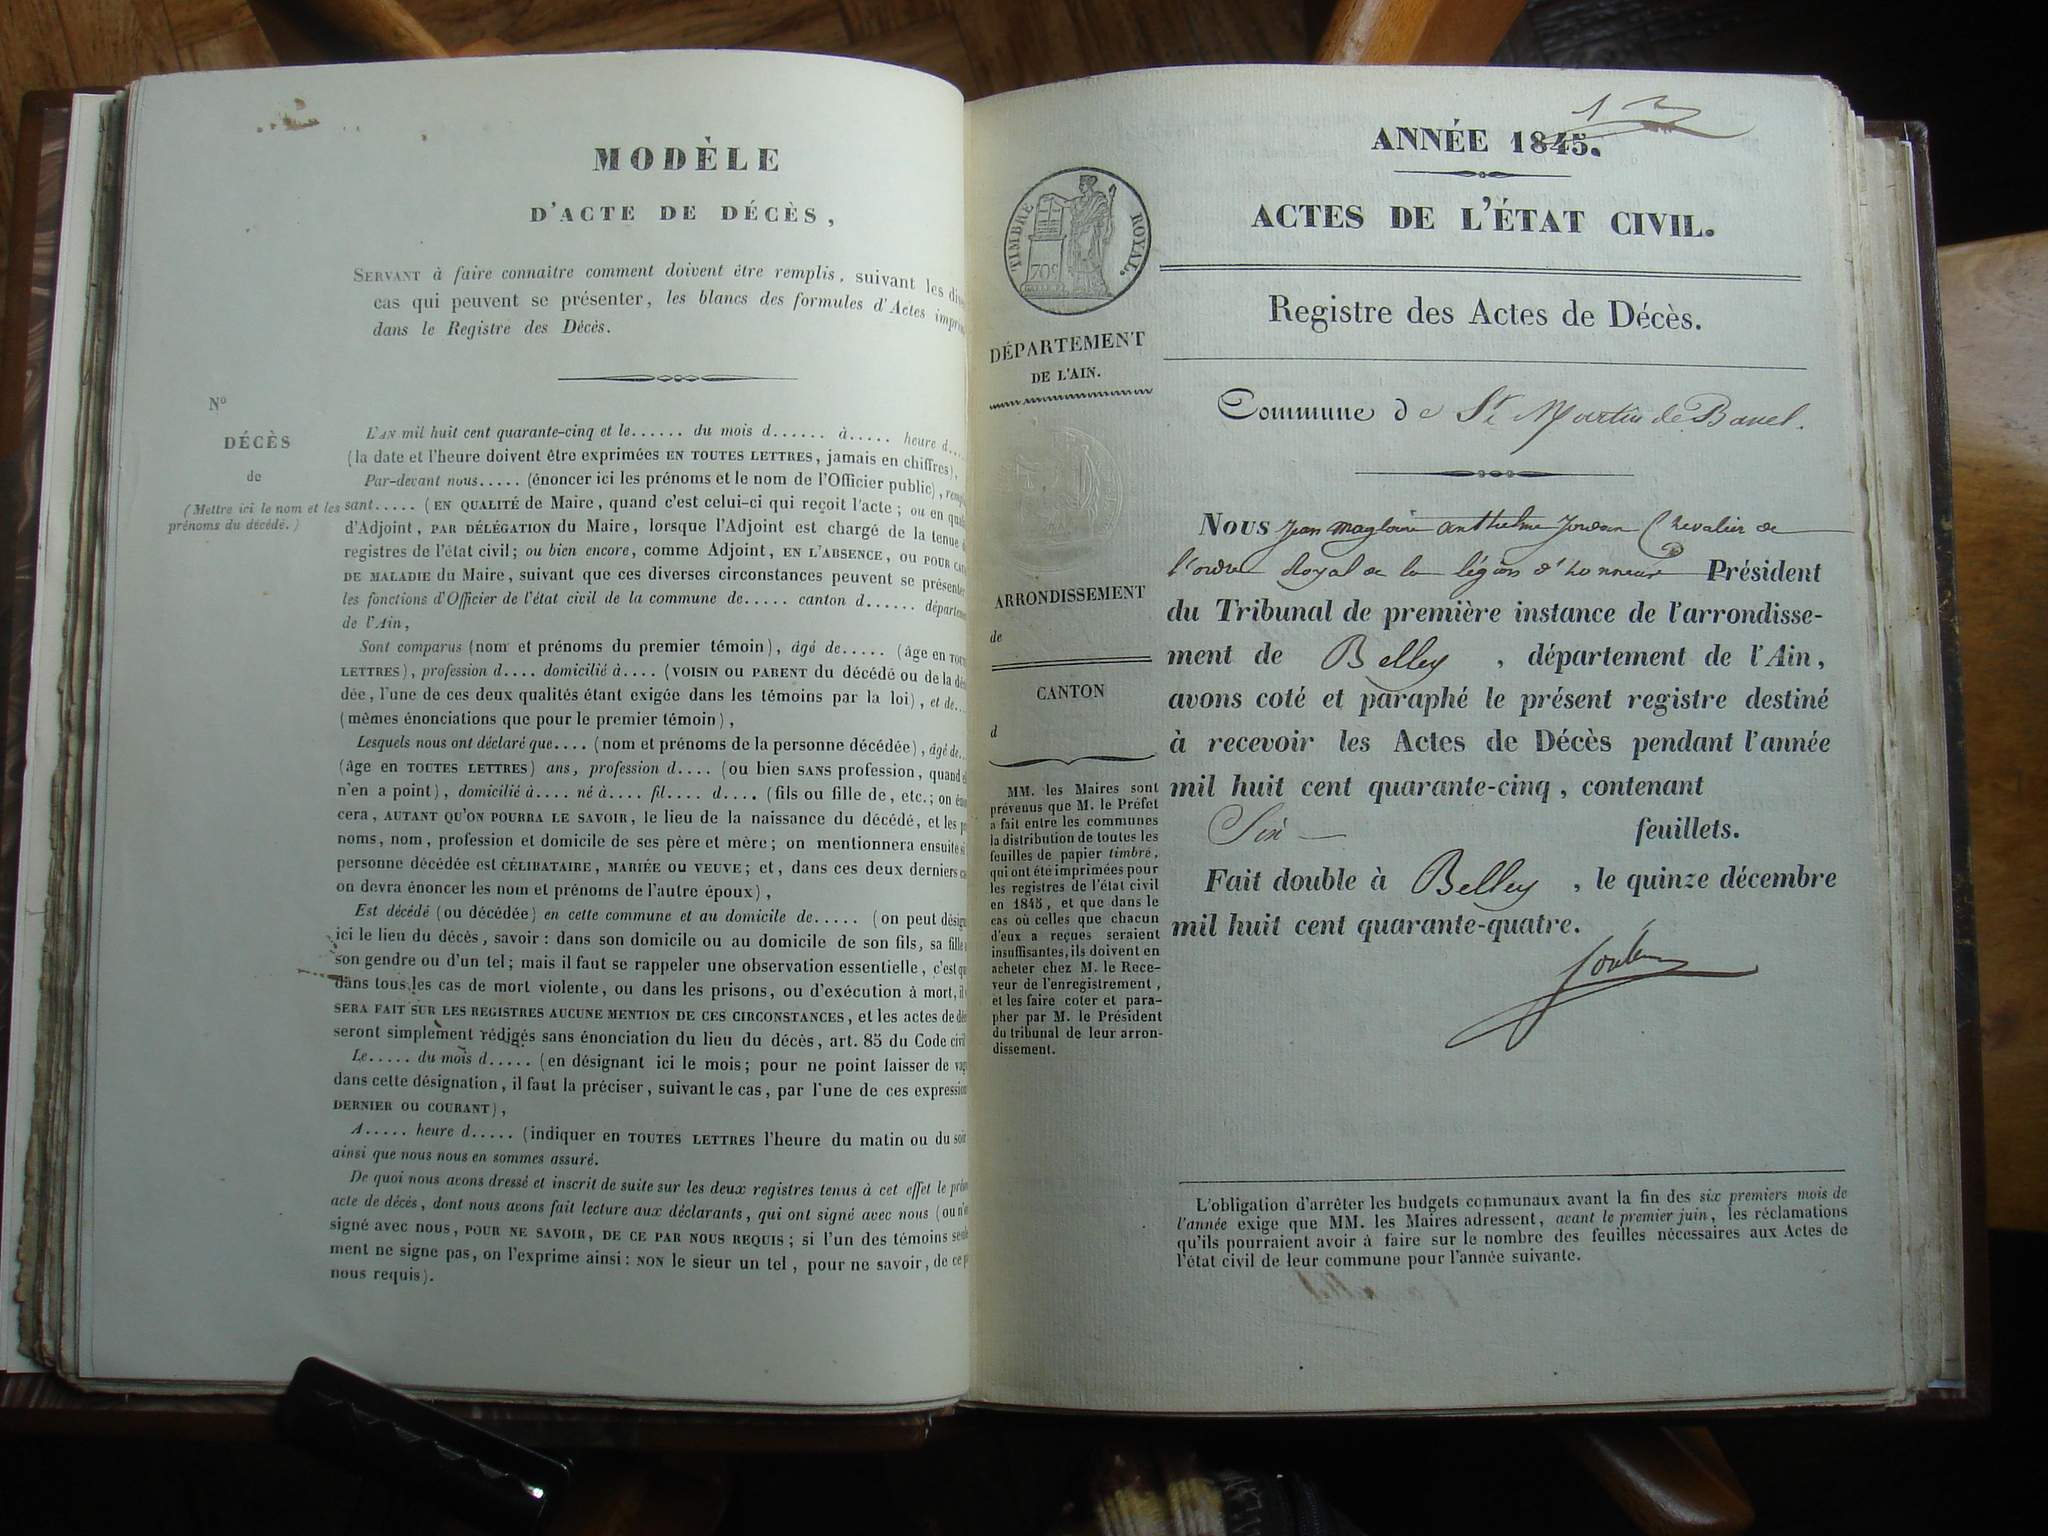 MODÈLE
D'ACTE DE DÉCÈS,
SERVANT à faire connaître comment doivent être remplis, suivant les
cas qui peuvent se présenter, les blancs des formules d'Actes
dans le Registre des Décès.
N°
DÉCÈS
de
(Mettre ici le nom et les
prénoms du décédé.)
L'AN mil huit cent quarante-cinq et le...... du mois d...... à..... heure d....
(la date et l'heure doivent être exprimées EN TOUTES LETTRES, jamais en chiffres),
Par-devant nous..... (énoncer ici les prénoms et le nom de l'Officier public),
sant..... (EN QUALITÉ de Maire, quand c'est celui-ci qui reçoit l'acte; ou en
d'Adjoint, PAR DÉLÉGATION du Maire, lorsque l'Adjoint est chargé de la tenue
registres de l'état civil; ou bien encore, comme Adjoint, EN L'ABSENCE, OU POUR
DE MALADIE du Maire, suivant que ces diverses circonstances peuvent se
les fonctions d'Officier de l'état civil de la commune de..... canton d......
de l'Ain,
Sont comparus (nom et prénoms du premier témoin), âgé de..... (âge en
LETTRES), profession d.... domicilié à.... (VOISIN OU PARENT du décédé ou de la
dée, l'une de ces deux qualités étant exigée dans les témoins par la loi), et de...
(mêmes énonciations que pour le premier témoin),
Lesquels nous ont déclaré que.... (nom et prénoms de la personne décédée), âgé de..
(âge en TOUTES LETTRES) ans, profession d.... (ou bien SANS profession, quand
n'en a point), domicilié à.... né à.... fil.... d.... (fils ou fille de, etc.; on
cera, AUTANT QU'ON POURRA LE SAVOIR, le lieu de la naissance du décédé, et les
noms, nom, profession et domicile de ses père et mère; on mentionnera ensuite
personne décédée est CÉLIBATAIRE, MARIÉE OU VEUVE; et, dans ces deux derniers
on devra énoncer les nom et prénoms de l'autre époux),
Est décédé (ou décédée) en cette commune et au domicile de..... (on peut
ici le lieu du décès, savoir: dans son domicile ou au domicile de son fils, sa fille
son gendre ou d'un tel; mais il faut se rappeler une observation essentielle, c'est
dans tous les cas de mort violente, ou dans les prisons, ou d'exécution à mort,
SERA FAIT SUR LES REGISTRES AUCUNE MENTION DE CES CIRCONSTANCES, et les actes de
seront simplement rédigés sans énonciation du lieu du décès, art. 85 du Code civil
Le..... du mois d..... (en désignant ici le mois; pour ne point laisser de
dans cette désignation, il faut la préciser, suivant le cas, par l'une de ces
DERNIER OU COURANT),
A..... heure d..... (indiquer en TOUTES LETTRES l'heure du matin ou du soir
ainsi que nous nous en sommes assuré.
De quoi nous avons dressé et inscrit de suite sur les deux registres tenus à cet effet le
acte de décès, dont nous avons fait lecture aux déclarants, qui ont signé avec nous (ou
signé avec nous, POUR NE SAVOIR, DE CE PAR NOUS REQUIS; si l'un des témoins
ment ne signe pas, on l'exprime ainsi: NON le sieur un tel, pour ne savoir, de ce
nous requis).
TIMBRE ROYAL.
70c
DÉPARTEMENT
DE L'AIN.
ARRONDISSEMENT
de
CANTON
d
MM. les Maires sont
prévenus que M. le Préfet
a fait entre les communes
la distribution de toutes les
feuilles de papier timbré,
qui ont été imprimées pour
les registres de l'état civil
en 1845, et que dans le
cas où celles que chacun
d'eux a reçues seraient
insuffisantes, ils doivent en
acheter chez M. le Rece-
veur de l'enregistrement,
et les faire coter et para-
pher par M. le Président
du tribunal de leur arron-
dissement.
ANNÉE 1845.
ACTES DE L'ÉTAT CIVIL.
Registre des Actes de Décès.
Commune de St Martin de Bavel.
NOUS Jean Magloire Anthelme Jordan Chevalier de
l'ordre Royal de la légion d'honneur Président
du Tribunal de première instance de l'arrondisse-
ment de Belley, département de l'Ain,
avons coté et paraphé le présent registre destiné
à recevoir les Actes de Décès pendant l'année
mil huit cent quarante-cinq, contenant
Six feuillets.
Fait double à Belley, le quinze décembre
mil huit cent quarante-quatre.
L'obligation d'arrêter les budgets communaux avant la fin des six premiers mois de
l'année exige que MM. les Maires adressent, avant le premier juin, les réclamations
qu'ils pourraient avoir à faire sur le nombre des feuilles nécessaires aux Actes de
l'état civil de leur commune pour l'année suivante.